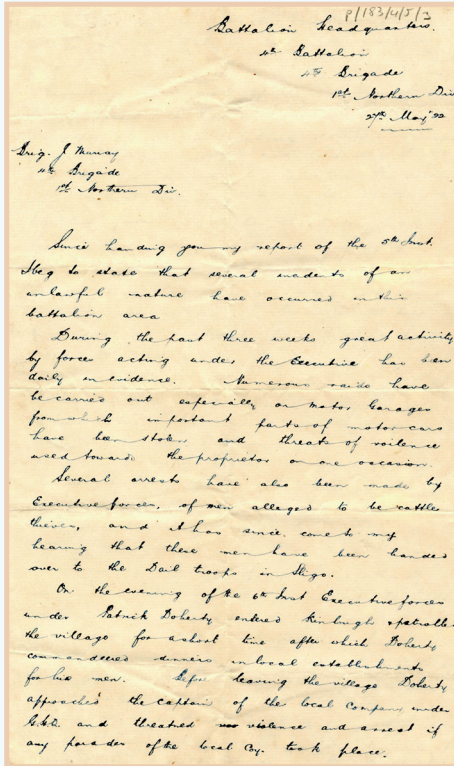 P/183/4/5/3
Battalion Headquarters.
4th Battalion
4th Brigade
1st Northern Div
27th May 22
Brig. J Murray
4th Brigade
1st Northern Div.
Since handing you my report of the 5th Inst.
I beg to state that several incidents of an
unlawful nature have occurred in this
battalion area
During the past three weeks great activity
by forces acting under the Executive has been
daily in evidence. Numerous raids have
be carried out especially on Motor Garages
from which important parts of motor cars
have been stolen and threats of voilence
used towards the proprietor on one occasion.
Several arrests have also been made by
Executive forces, of men alleged to be cattle
thieves, and it has since come to my
hearing that these men have been handed
over to the Dail troops in Sligo.
On the evening of the 6th Inst Executive forces
under Patrick Doherty entered &
the village for a short time after which Doherty
commandeered dinners in local establishments
for his men. Before leaving the village Doherty
approached the captain of the local Company under
G.H.Q. and threatned violence and arrest if
any parades of the local Coy. took place.